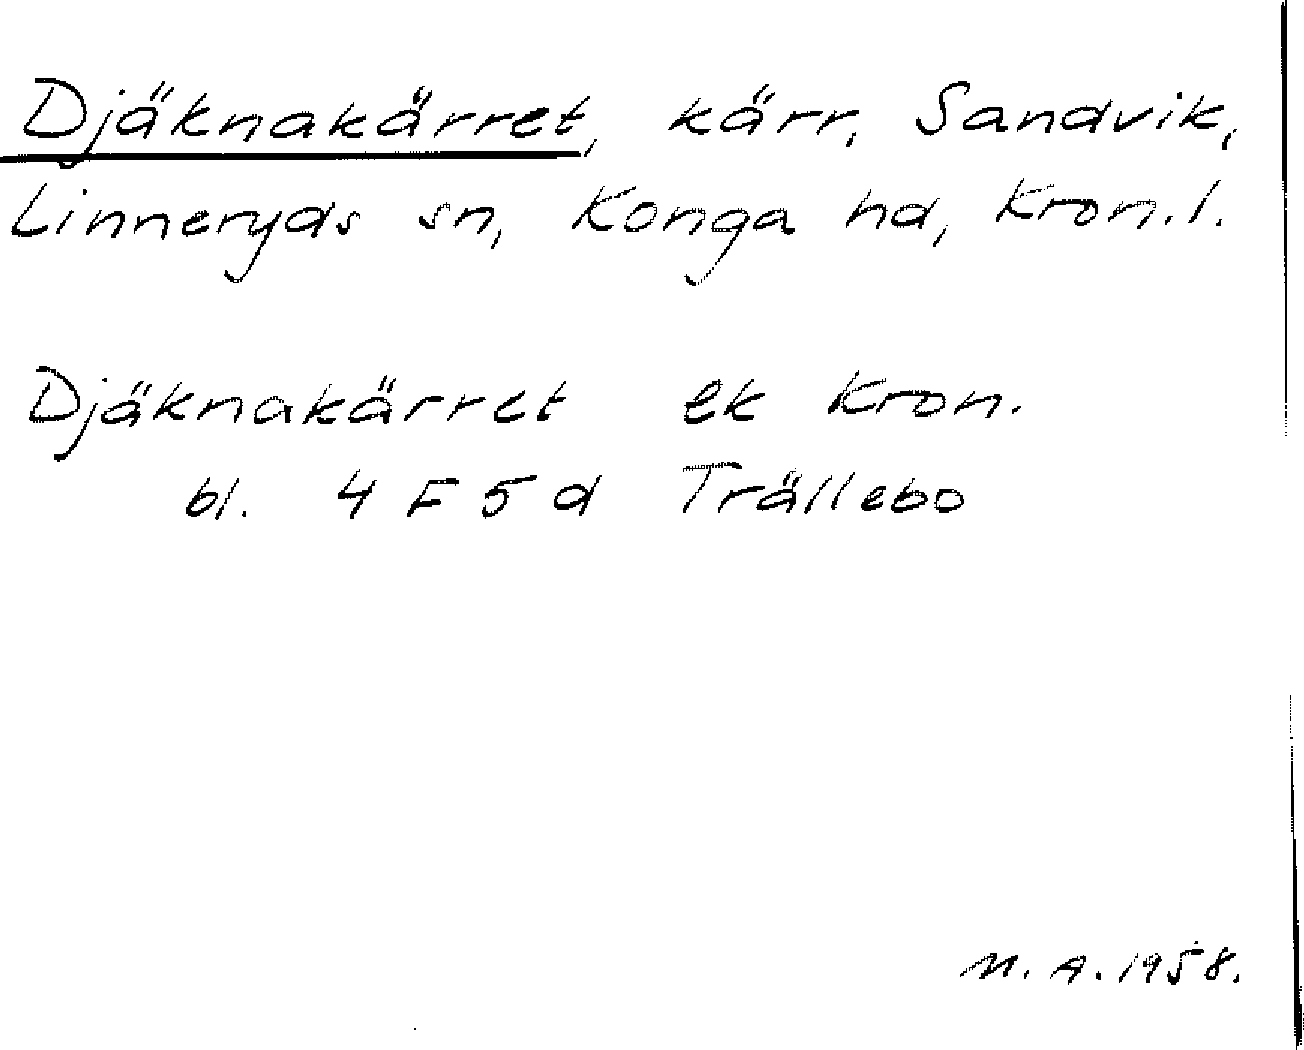 Djäknakärret, kärr, Sandvik,
Linneryds sn, Konga hd, Kron.l.
Djäknakärret ek Kron.
bl. 4 F 5 d Trällebo
M.A.1958.